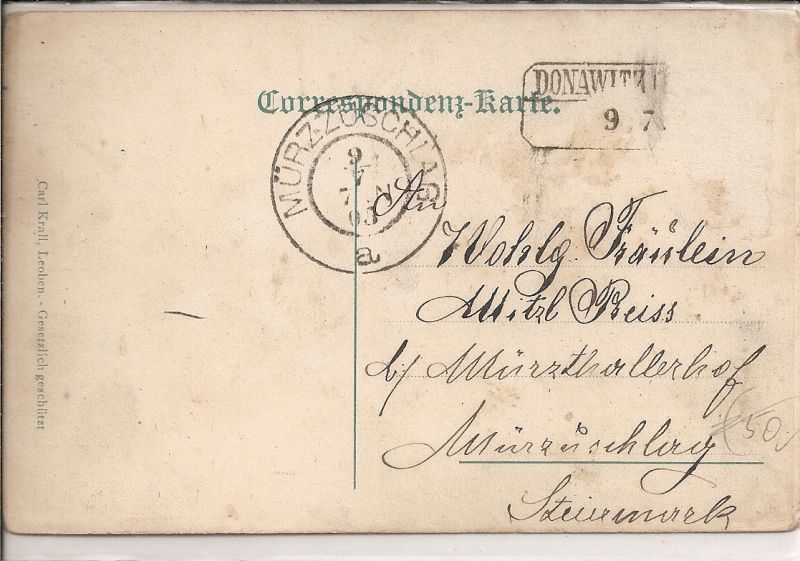 DONAWITZ
9 7
Correspondenz-Karte.
MÜRZZUSCHLAG
9
7
N
03
a
An
Wohlg. Fräulein
Mitzl Preiss
b/ Mürzthallerhof
Mürzzuschlag
Steiermark
50
Carl Krall, Leoben. - Gesetzlich geschützt